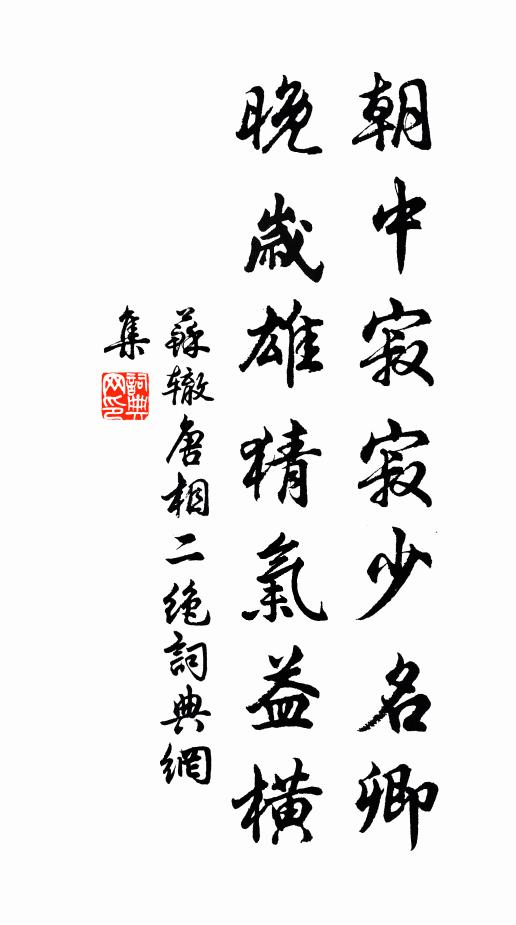 朝中寂寂少名卿
晚歲雄猜氣益橫
蘇轍唐相二絶詞典網
集
詞典
网印